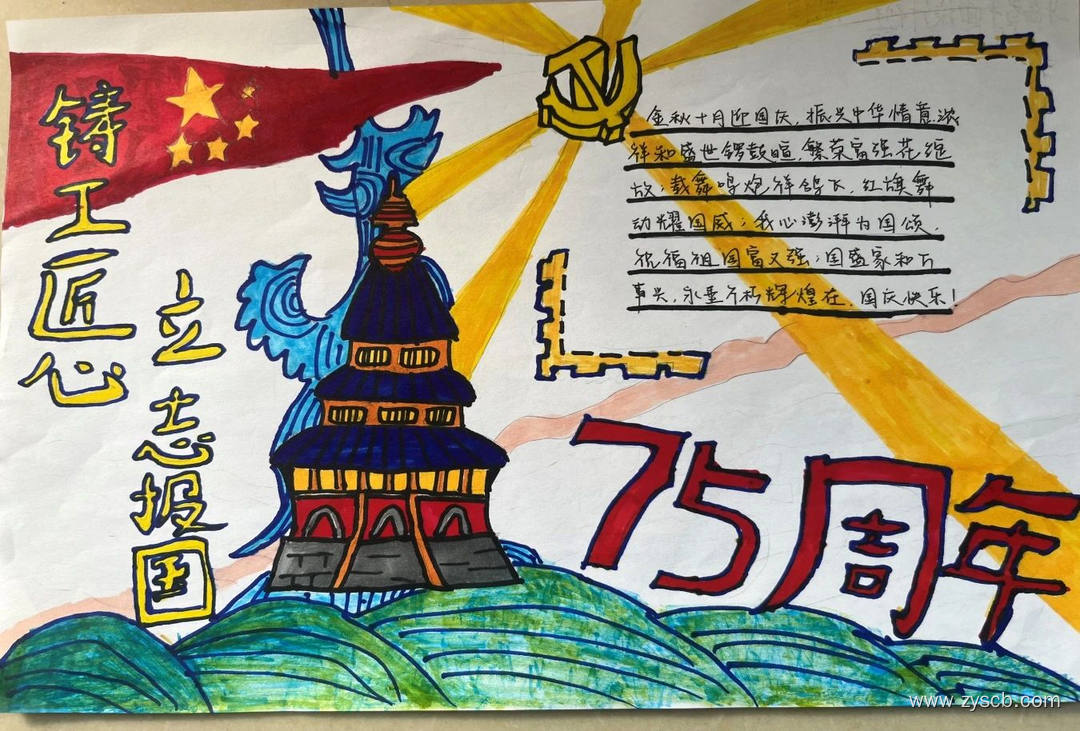 铸工匠心
立志报国
金秋十月迎国庆，振兴中华情意浓
祥和盛世锣鼓喧，繁荣富强花绽
放；载舞鸣炮祥鸽飞，红旗舞
动耀国威；我心澎湃为国颂，
祝福祖国富又强；国盛家和万
事兴，永垂不朽辉煌在，国庆快乐！
75周年
www.zyscb.com